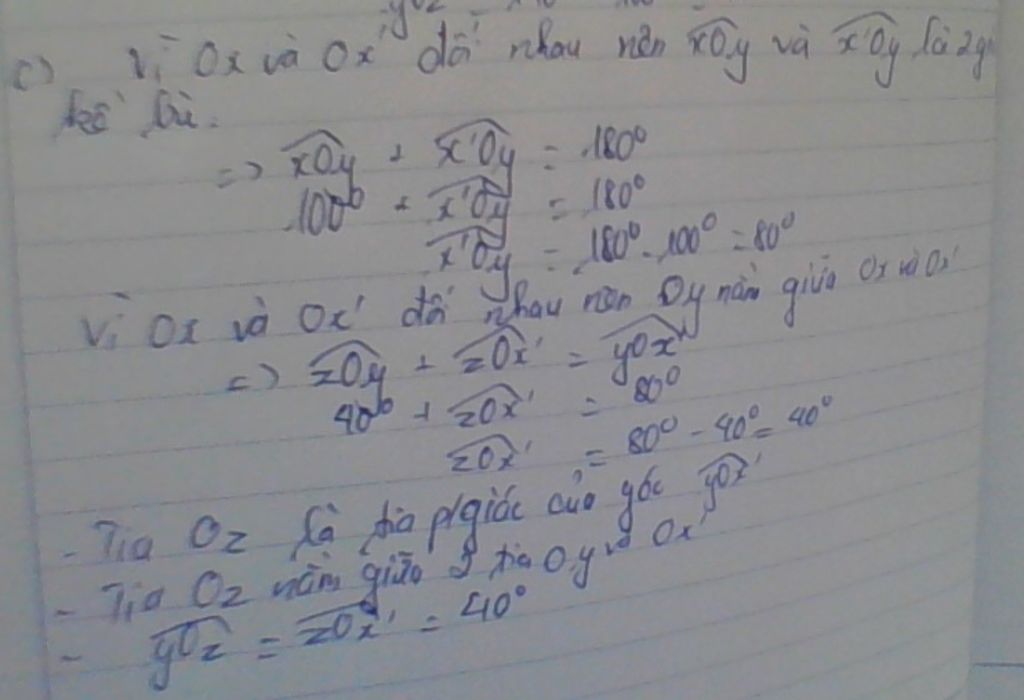 c) Vì Ox và Ox' đối nhau nên xOy và x'Oy là 2 gó
kề bù.
=> xOy + x'Oy = 180°
100° + x'Oy = 180°
x'Oy = 180° - 100° = 80°
Vì Ox và Ox' đối nhau nên Oy nằm giữa Ox và Ox'
=> zOy + zOx' = yOx'
40° + zOx' = 80°
zOx' = 80° - 40° = 40°
- Tia Oz là tia p/giác của góc yOx'
- Tia Oz nằm giữa 2 tia Oy và Ox'
- yOz = zOx' = 40°